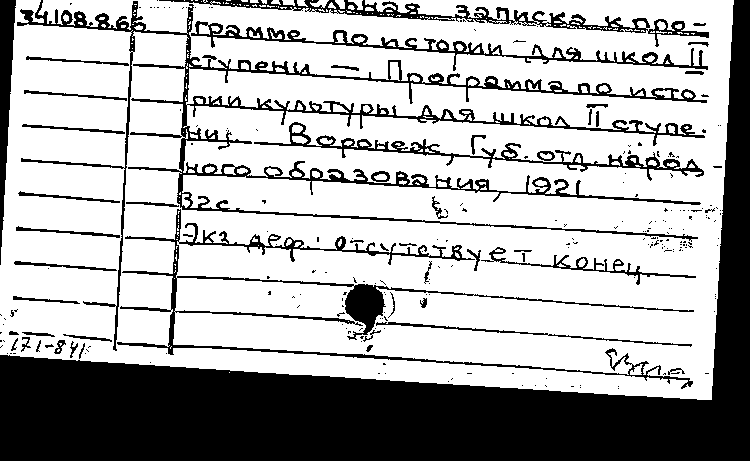 записка к про-
34.108.8.66
грамме по истории для школ II
ступени —, Программа по исто-
рии культуры для школ II ступе-
ни. Воронеж, Губ. отд. народ-
ного образования, 1921
32с.
Экз. деф.: отсутствует конец.
171-841